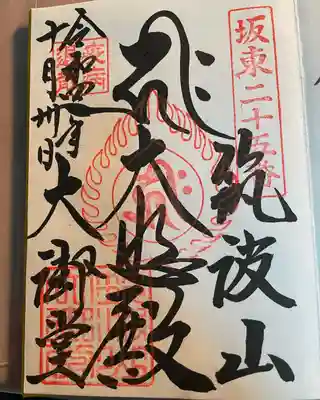 坂東二十五番
筑波山
大悲殿
令和四年
十月卅日
大御堂